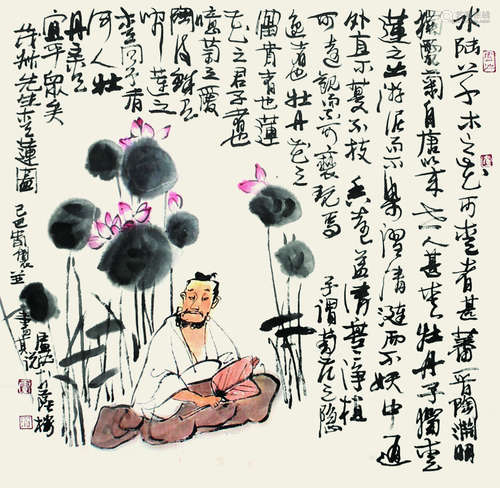 水陆草木之花可爱者甚蕃晋陶渊明
獨爱菊自唐以来世人甚爱牡丹予獨爱
莲之出淤泥而不染濯清涟而不妖中通
外直不蔓不枝香遠益清亭亭净植
可遠觀而不可褻玩焉予謂菊花之隐
逸者也牡丹花之
富贵者也蓮
花之君子者也
噫菊之爱
陶後鲜有
闻蓮之
爱同予者
何人牡
丹之爱
宜乎眾矣
茂叔先生爱蓮圖
己巳製並
書其说